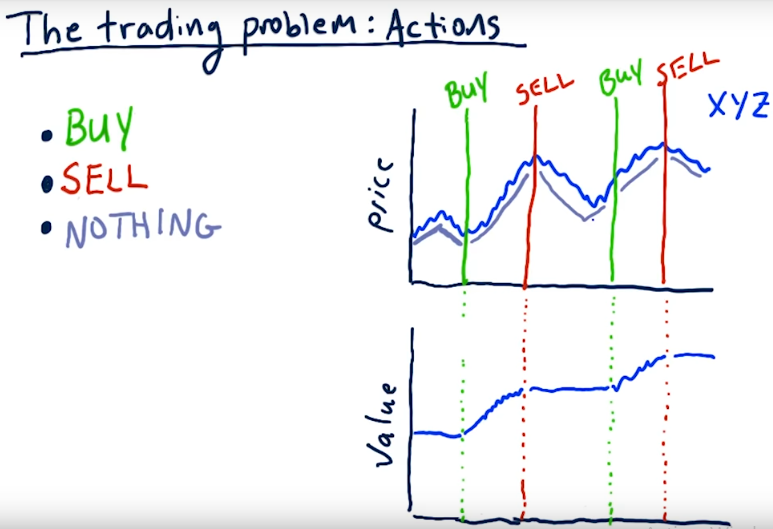 The trading problem: Actions
• BUY
• SELL
• NOTHING
BUY SELL BUY SELL
XYZ
price
value